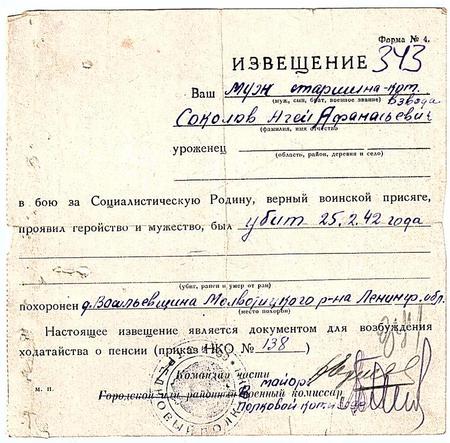 Форма № 4.
ИЗВЕЩЕНИЕ 343
Ваш муж старшина-кот.
(муж, сын, брат, военное звание) взвода
Соколов Агей Афанасьевич
(фамилия, имя отчество)
уроженец
(область, район, деревня и село)
в бою за Социалистическую Родину, верный воинской присяге,
проявил геройство и мужество, был убит 25.2.42 года
(убит, ранен и умер от ран)
похоронен д. Васильевщина Молвотицкого р-на Ленингр. обл.
(место похорон)
Настоящее извещение является документом для возбуждения
ходатайства о пенсии (приказ НКО № 138 )
Командир части майор
м. п. Городской или районный военный комиссар
Полковой